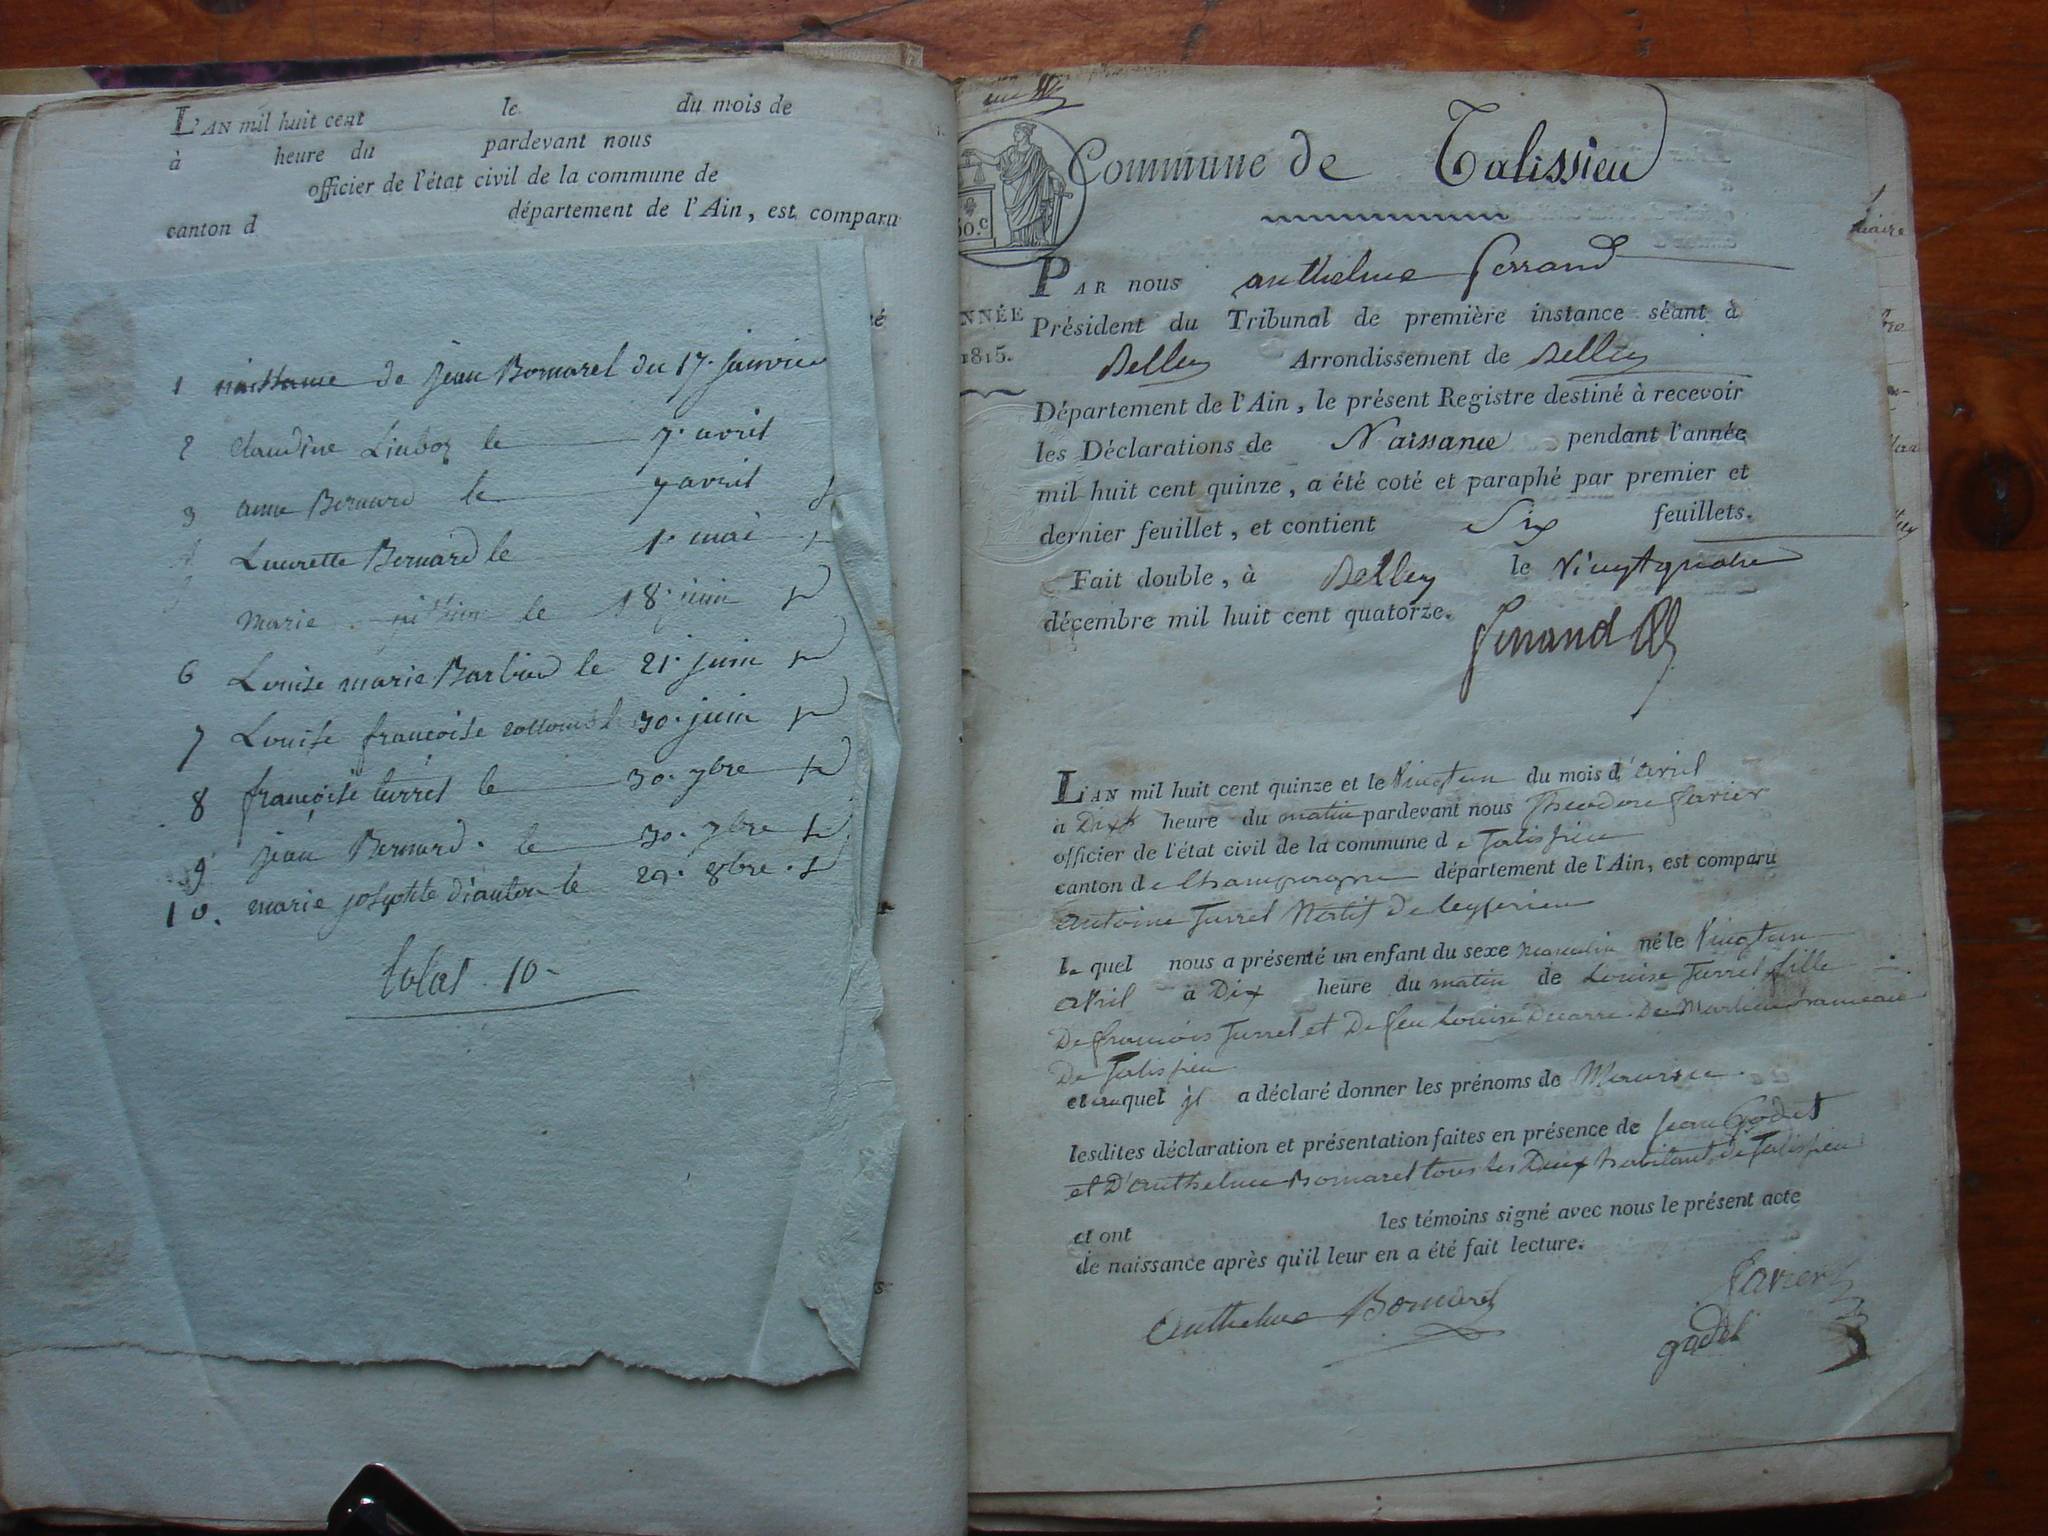 L'AN mil huit cent le du mois de
à heure du pardevant nous
officier de l'état civil de la commune de
canton d département de l'Ain, est comparu
1 naissance de jean Bomarel du 17. janvier
2 Claudine le 7. avril
3 anne Bernard le 7 avril
4 Laurette Bernard le 1. mai
marie le 18. juin
6 Louise marie Barbier le 21. juin
7 Louise francoise 30. juin
8 françoise turrel le 30. 7bre
9 jean Bernard. le 30. 7bre
10. marie josephte le 29. 8bre.
total. 10
Commune de Talissieu
50.c
PAR nous anthelme Ferrand
NNÉE
1815.
Président du Tribunal de première instance séant à
Belley Arrondissement de Belley
Département de l'Ain, le présent Registre destiné à recevoir
les Déclarations de Naissance pendant l'année
mil huit cent quinze, a été coté et paraphé par premier et
dernier feuillet, et contient Six feuillets.
Fait double, à Belley le vingtquatre
décembre mil huit cent quatorze.
Ferrand
L'AN mil huit cent quinze et le Vingtun du mois d'avril
à Dix heure du matin pardevant nous Theodore favier
officier de l'état civil de la commune de Talissieu
canton de Champagne département de l'Ain, est comparu
antoine Turrel Natif De ceyserieu
le quel nous a présenté un enfant du sexe masculin né le Vingtun
avril à Dix heure du matin de Louise Turrel fille
De françois Turrel et De feu Louise
De Talissieu
et auquel il a déclaré donner les prénoms de Maurice.
lesdites déclaration et présentation faites en présence de Jean Godet
et D'anthelme Bomarel tous les Deux habitant de Talissieu
et ont les témoins signé avec nous le présent acte
de naissance après qu'il leur en a été fait lecture.
Anthelme Bomarel
favier
godet